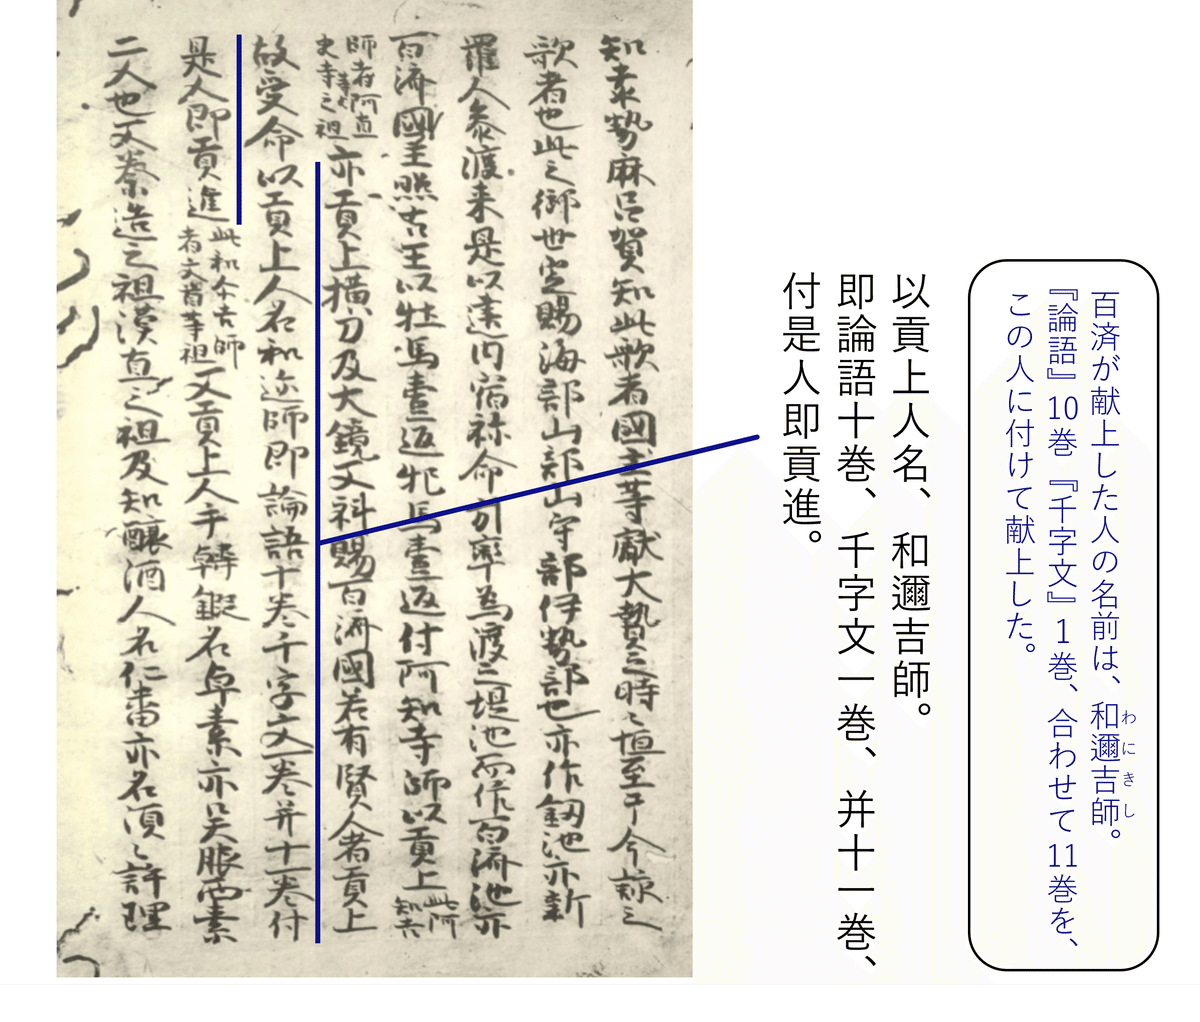 百済が献上した人の名前は、和邇吉師。
わにきし
『論語』10巻『千字文』1巻、合わせて11巻を、
この人に付けて献上した。
以貢上人名、和邇吉師。
即論語十巻、千字文一巻、并十一巻、
付是人即貢進。
知袁勢麻呂賀知此歌者國主等獻大贄之時々恒至于今詠之
歌者也此之御世定賜海部山部山守部伊勢部也亦作釼池亦新
羅人参渡来是以建内宿祢命引率為渡之堤池而作百済池亦
百済國主照古王以牡馬壹疋牝馬壹疋付阿知吉師以貢上此阿知吉
師者阿直史等之祖亦貢上横刀及大鏡又科賜百済國若有賢人者貢上
故受命以貢上人名和迩師即論語十巻千字文一巻并十一巻付
是人即貢進此和尓吉師者文首等祖又貢上人手韓鍛名卓素亦呉服西素
二人也又秦造之祖漢直之祖及知醸酒人名仁番亦名須々許理